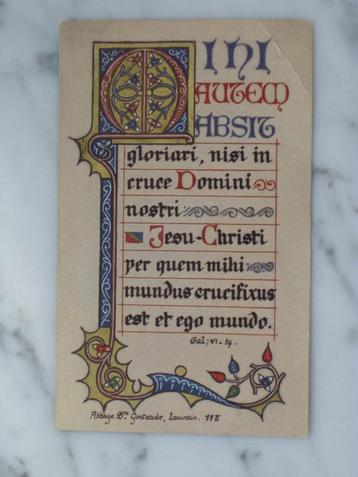 MIHI
AUTEM
ABSIT
gloriari, nisi in
cruce Domini
nostri
Jesu-Christi
per quem mihi
mundus crucifixus
est et ego mundo.
Gal; VI. 14.
Abbaye Ste Gertrude, Louvain. 118